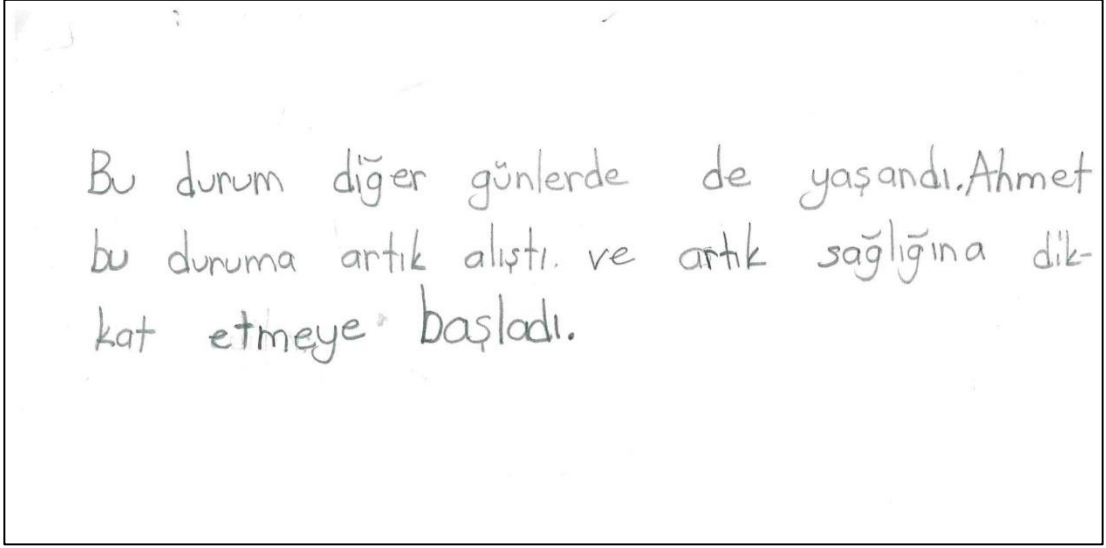 Bu durum diğer günlerde de yaşandı. Ahmet
bu duruma artık alıştı. ve artık sağlığına dik-
kat etmeye başladı.